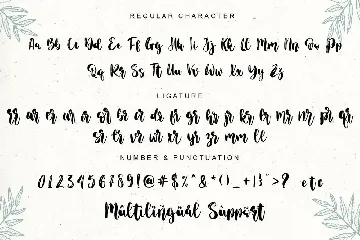 REGULAR CHARACTER
Aa Bb Cc Dd Ee Ff Gg Hh Ii Jj Kk Ll Mm Nn Oo Pp
Qq Rr Ss Tt Uu Vv Ww Xx Yy Zz
LIGATURE
er fr gr hr ir kr lr mr nr or pr qr
sr tr vr wr xr yr zr mm ll
NUMBER & PUNCTUATION
0123456789!@#$%^&*()_+|}">? etc
Multilingual Support